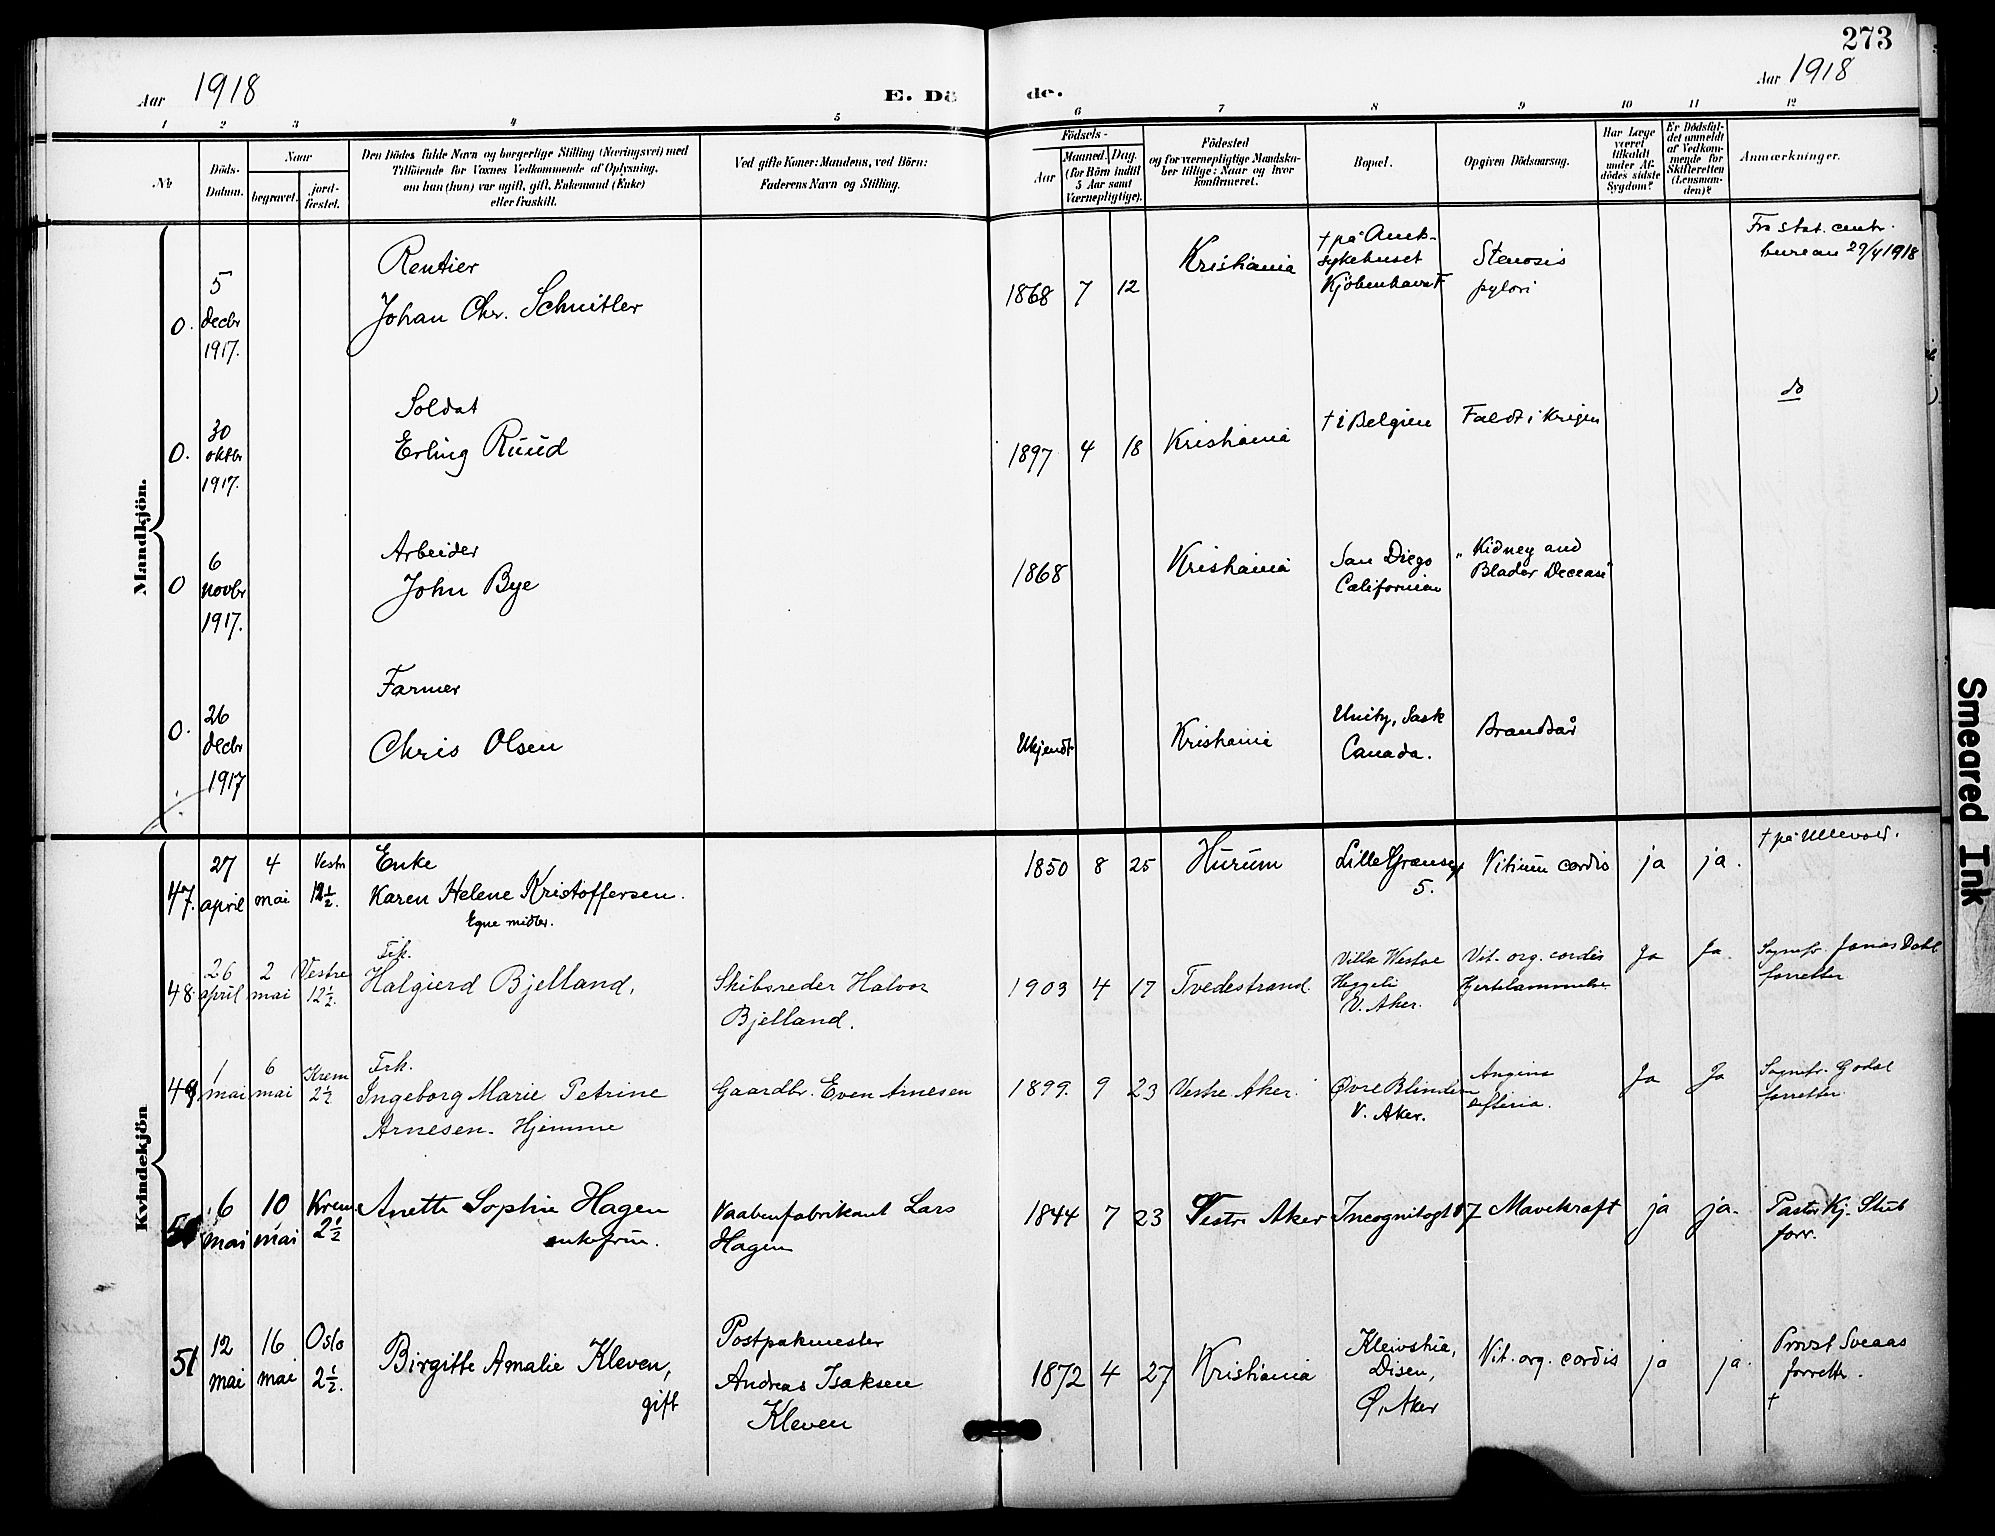 273
Aar 1918
E. Döde.
Aar 1918
1 2 3 4 5 6 7 8 9 10 11 12
No
Döds-
Datum.
Naar
begravet.
jord-
fæstet.
Den Dödes fulde Navn og borgerlige Stilling (Næringsvei) med
Tilföiende for Voxnes Vedkommende af Oplysning,
om han (hun) var ugift, gift, Enkemand (Enke)
eller fraskilt.
Ved gifte Koner: Mandens, ved Börn:
Faderens Navn og Stilling.
Födsels-
Aar
Maaned. Dag.
(for Börn indtil
5 Aar samt
Værnepligtige).
Födested
og for værnepligtige Mandska-
ber tillige: Naar og hvor
konfirmeret.
Bopæl.
Opgiven Dödsaarsag.
Har Læge
været
tilkaldt
under Af-
dödes sidste
Sygdom?
Er Dödsfal-
det anmeldt
af Vedkom-
mende for
Skifteretten
(Lensman-
den)?
Anmærkninger.
Mandkjön.
0. 5 decbr 1917.
Rentier
Johan Chr. Schnitler
1868 7 12
Kristiania
† på Amts-
sykehuset
Kjöbenhavn F
Stenosis
pylori
Fra stat. centr.
bureau 29/4 1918
0. 30 oktbr 1917.
Soldat
Erling Ruud
1897 4 18
Kristiania
† i Belgien
Faldt i Krigen
do
0 6 novbr 1917.
Arbeider
John Bye
1868
Kristiania
San Diego
Californien
"Kidney and
Blader Decease"
0. 26 decbr 1917
Farmer
Chris Olsen
Ukjendt
Kristiania
Unity, Sask
Canada.
Brandsår
Kvindekjön
47. 27 april 4 mai Vestre 12½.
Enke
Karen Helene Kristoffersen.
Egne midler.
1850 8 25
Hurum
Lille Grænsen
5.
Vitium cordis
ja ja.
† på Ullevold.
48. 26 april 2 mai Vestre 12½.
Frk.
Halgierd Bjelland,
Skibsreder Halvor
Bjelland.
1903 4 17
Tvedestrand.
Villa Westoe
Heggeli
V. Aker.
Vit. org. cordis
Hjertelammelse
Ja Ja.
Sognepr. Jonas Dahl
forretter
49 1 mai 6 mai Krem 2½
Frk.
Ingeborg Marie Petrine
Arnesen. Hjemme
Gaardbr. Even Arnesen
1899. 9 23
Vestre Aker.
Øvre Blindern
V. Aker.
Angina
difteria.
Ja Ja
Sognepr. Godal
forretter.
6 mai 10 mai Krem 2½
Anette Sophie Hagen
enkefrue.
Vaabenfabrikant Lars
Hagen
1844 7 23
Vestre Aker
Incognitogt 17
Mavekræft
ja ja.
Pastor Kj. Stub
forr.
51 12 mai 16 mai Oslo 2½.
Birgitte Amalie Kleven,
gift
Postpakmester
Andreas Isaksen
Kleven
1872 4 27
Kristiania
Kleivstue,
Disen,
Ø. Aker
Vit. org. cordis
ja ja.
Provst Sveaas
forrettr.
†
Smeared Ink